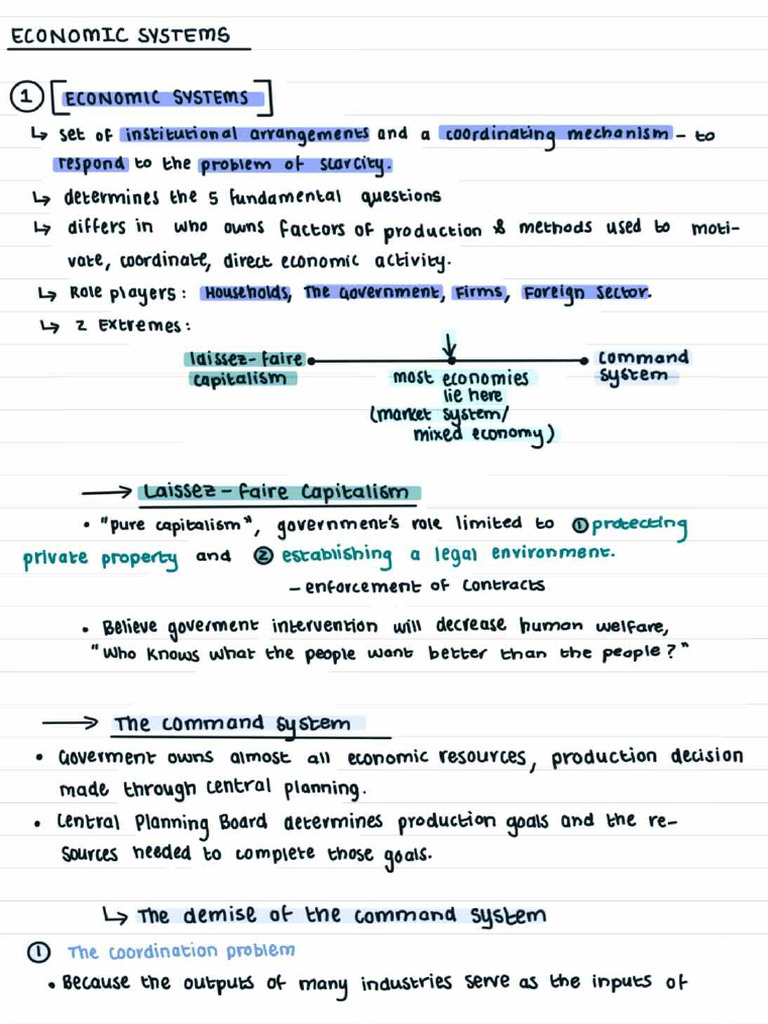 ECONOMIC SYSTEMS
① [ECONOMIC SYSTEMS]
↳ set of institutional arrangements and a coordinating mechanism – to
respond to the problem of scarcity.
↳ determines the 5 fundamental questions
↳ differs in who owns factors of production & methods used to moti-
vate, coordinate, direct economic activity.
↳ Role players: Households, The Government, Firms, Foreign Sector.
↳ 2 Extremes:
laissez-faire
capitalism
most economies
lie here
(market system/
mixed economy)
command
system
→ Laissez-Faire Capitalism
• "pure capitalism", government's role limited to ① protecting
private property and ② establishing a legal environment.
– enforcement of contracts
• Believe goverment intervention will decrease human welfare,
"Who knows what the people want better than the people?"
→ The command system
• Goverment owns almost all economic resources, production decision
made through central planning.
• Central Planning Board determines production goals and the re-
sources needed to complete those goals.
↳ The demise of the command system
① The coordination problem
• Because the outputs of many industries serve as the inputs of